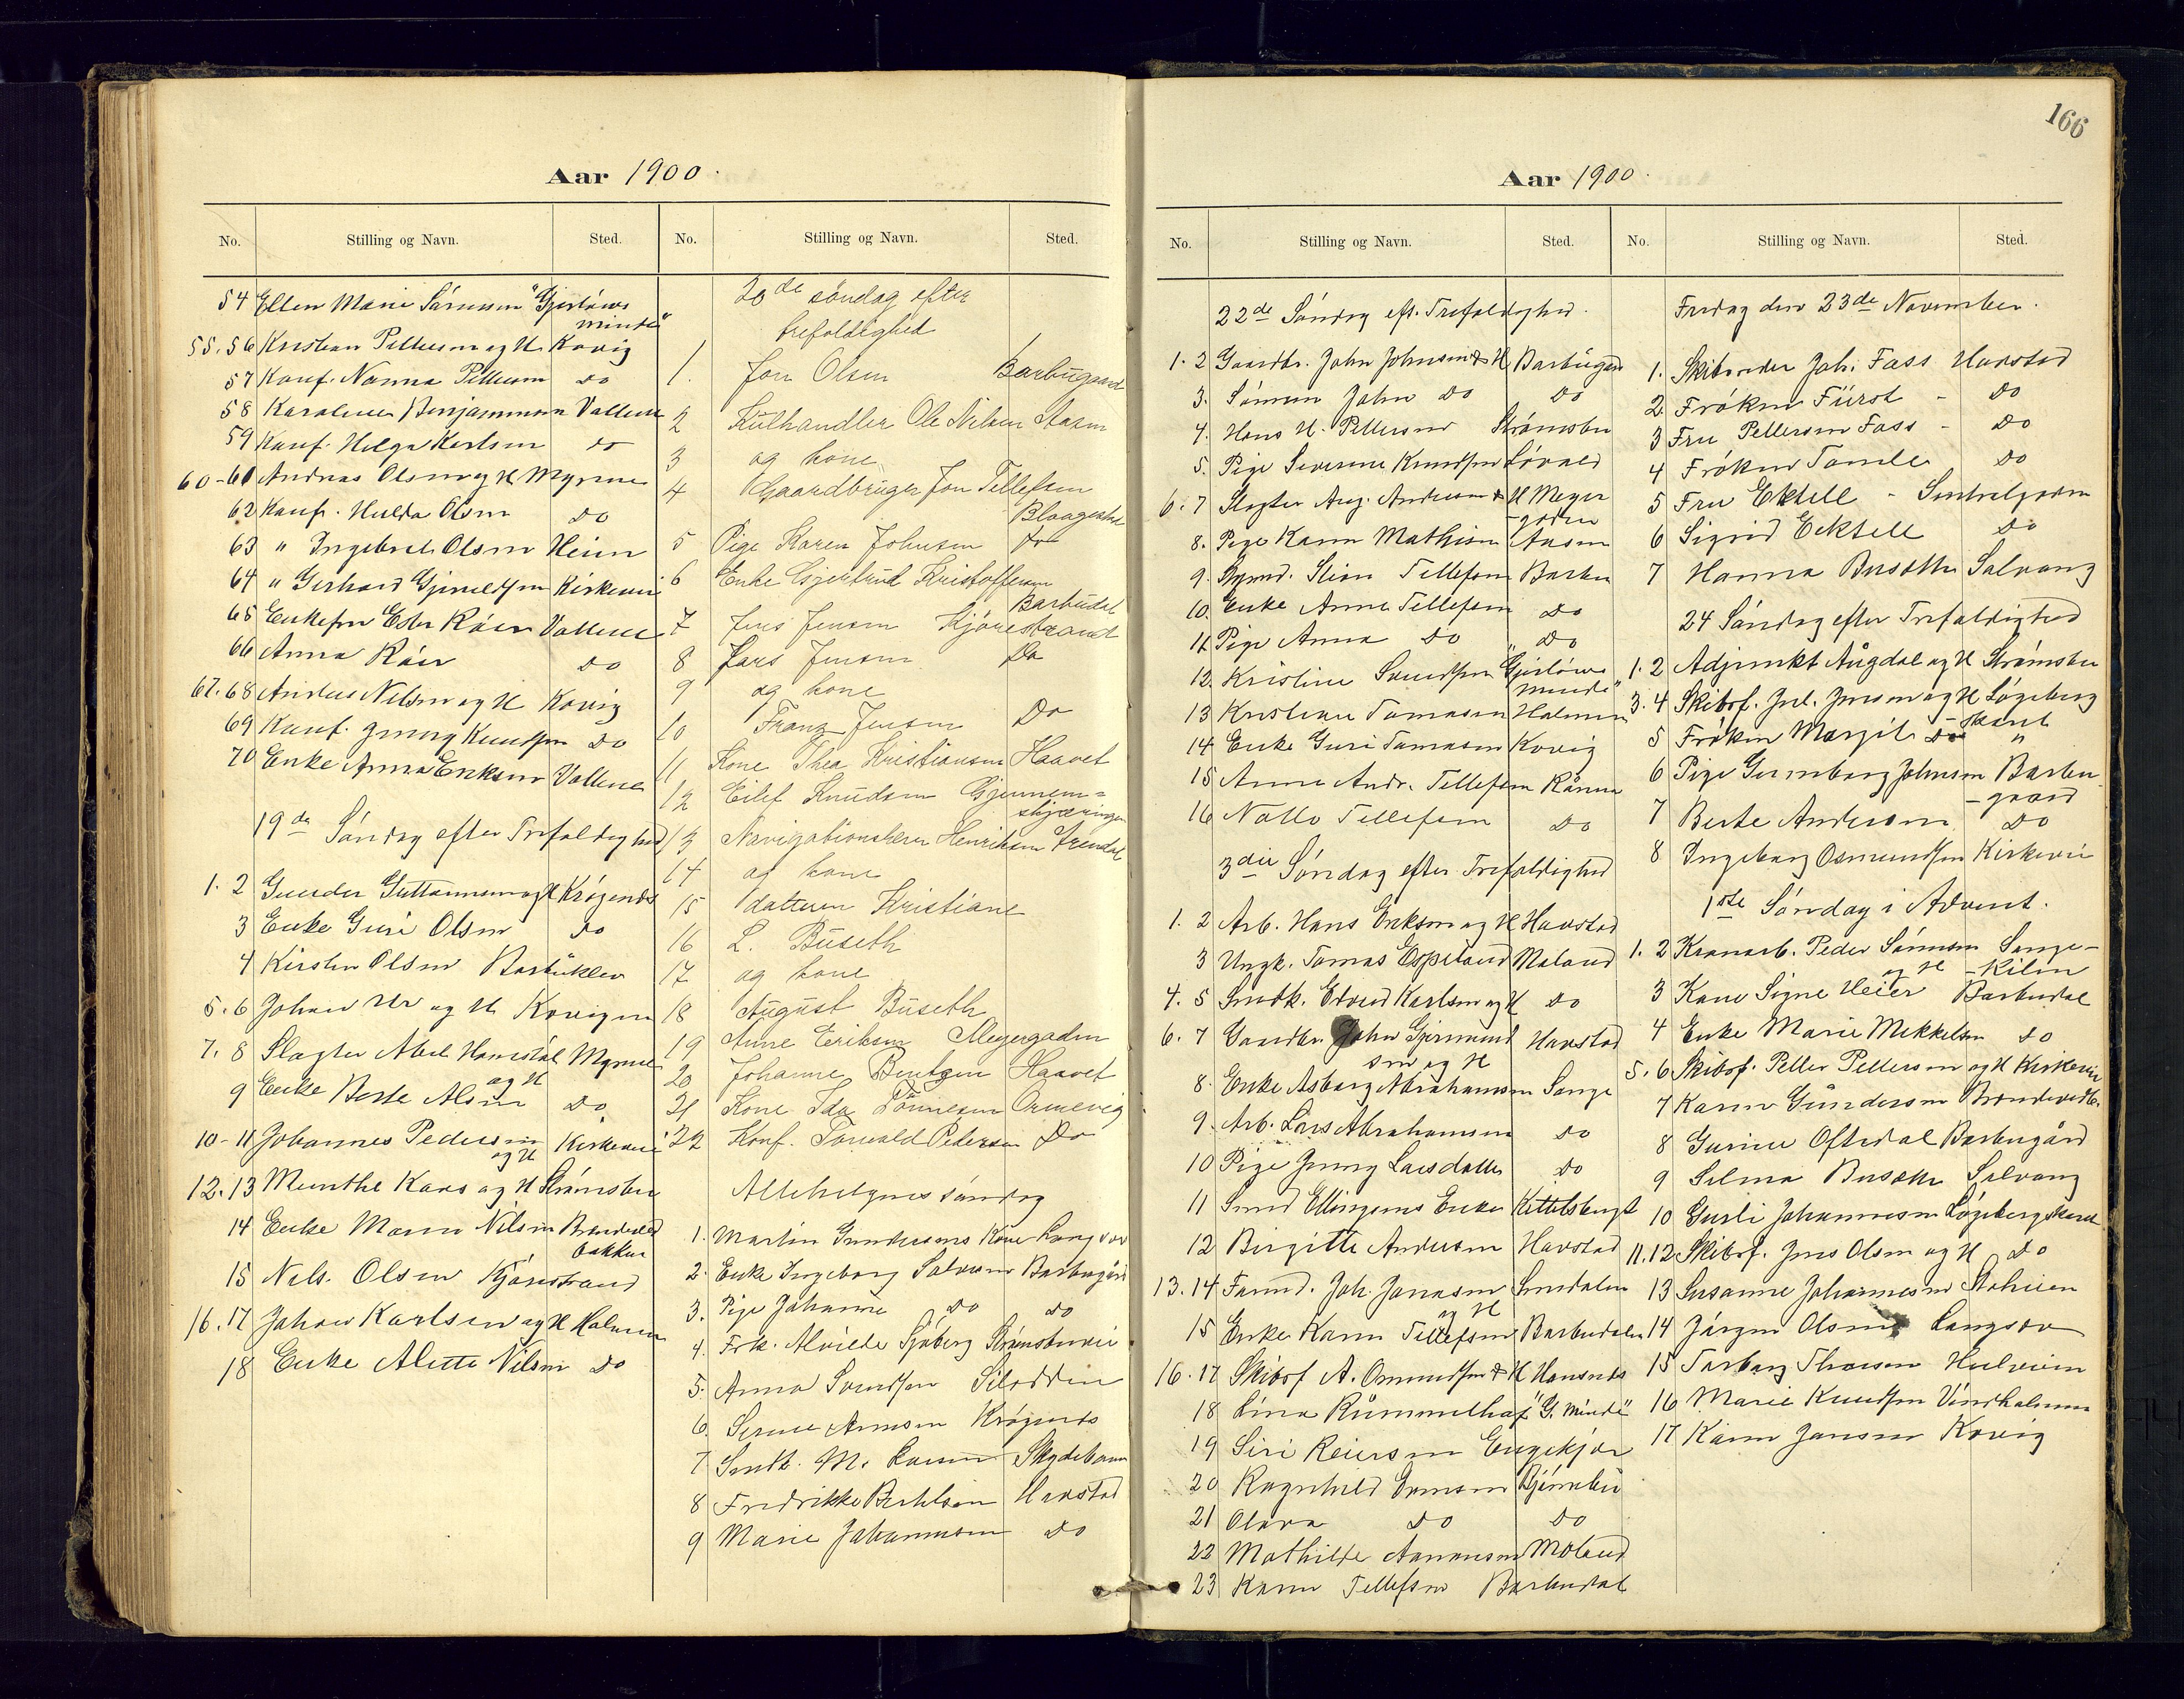 Aar 1900.
No. Stilling og Navn. Sted.
54 Ellen Marie Sørensen "Gjerløws
minde"
55.56 Kristian Pettersen og H Kovig
57 Konf. Nanna Pettersen do
58 Karoline Benjaminsen Vollene
59 Konf. Helga Karlsen do
60-61 Andreas Olsen og H Myrene
62 Konf. Hulda Olsen do
63 " Ingebret Olsen Heien
64 " Gerhard Kirkevei
65 Enkefru Ester Röer Vollene
66 Anna Röer do
67.68 Anders Nilsen og H Kovig
69 Konf. Jenny Knudsen do
70 Enke Anna Eriksen Vollene
19de Søndag efter Trefoldighed
1. 2 Gunder Guttormsen og H Krøgenes
3 Enke Guri Olsen do
4 Kirsten Olsen Barbuklev
5.6 Johan Ur og H Kovigen
7. 8 Slagter Abel Harestal Myrene
og H
9 Enke Berte Olsen do
10-11 Johannes Pedersen Kirkevei
og H
12.13 Munthe Kaas og H Strømsbu
14 Enke Maren Nilsen
bakken
15 Nils Olsen Kjørrestrand
16.17 Johan Karlsen og H Holmen
18 Enke Alette Nilsen do
No. Stilling og Navn. Sted.
20de søndag efter
trefoldighed
1. Jon Olsen Barbugaard
2 Kulhandler Ole Nilsen Aasen
3 og kone
4 Gaardbruger Jon Tellefsen
Blaagestad
5 Pige Karen Johnsen Do
6 Enke Gjertrud Kristoffersen
Barbudal
7 Jens Jensen Kjørrestrand
8 Lars Jensen Do
9 og kone
10 Franz Jensen Do
11 Kone Thea Kristiansen Haavet
12 Eilef Knudsen Gjennem=
skjæringen
13 Navigationslærer Henriksen Arendal
14 og kone
15 datteren Kristiane
16 L. Buseth
17 og kone
18 August Buseth
19 Anne Eriksen Meyergaden
20 Johanne Bentzen Haavet
21 Kone Ida Tönnesen Ormevig
22 Konf. Torvald Pedersen Do
Allehelgenssøndag
1. Martin Gundersens Kone Langsæv
2. Enke Ingeborg Salvesen Barbugård
3. Pige Johanne do do
4. Frk. Alvilde Sjøberg Strømsbuvei
5. Anna Svendsen Silodden
6. Serine Aimsen Krøgenes
7 Smedk. M. Larsen Skydebanen
8 Fredrikke Berthelsen Havstad
9 Marie Johannessen do
166
Aar 1900.
No. Stilling og Navn. Sted.
22de Søndag eft. Trefoldighed.
1. 2 Gaardbr. John Johnsen & H Barbugård
3. Sønnen John do do
4. Hans H. Pettersen Strømsbu
5. Pige Severine Knudsen Løvold
6.7 Slagter Aug. Andersen & H Meyer
-gaden
8. Pige Karen Mathisen Aasen
9. Stian Tellefsen Barbu
10. Enke Anne Tellefsen do
11 Pige Anna do do
12. Kristine Svendsen "Gjerløws
minde"
13 Kristiane Tomasen Holmen
14 Enke Guri Tomasen Kovig
15 Anne Andr. Tellefsen Rånen
16 Nollo Tellefsen do
3die Søndag efter Trefoldighed
1. 2 Arb. Hans Eriksen og H Havstad
3 Ungk. Tomas Espeland Moland
4. 5 Smedk. Edvard Karlsen og H do
6. 7 Gaardbr. John Gjermund Havstad
sen og H
8. Enke Asborg Abrahamsen Songe
9. Arb. Lars Abrahamsen do
10 Pige Jenny Larsdatter do
11 Smed Ellingsens Enke Kittelsbugt
12 Birgitte Andersen Havstad
13.14 Farmd. Joh. Jonassen Smedalen
og H
15 Enke Karen Tellefsen Barbudalen
16.17 Skibsf A. Omundsen & H Hansnes
18 Lina Rummelhof "G. Minde"
19 Siri Reiersen Engekjær
20 Ragnhild Bjørnebu
21 Olava do do
22 Mathilde Aanonsen Moland
23 Karen Tellefsen Barbudal
No. Stilling og Navn. Sted.
Fredag den 23de November.
1. Skibsreder Joh. Fass Havstad
2. Frøken Fürst - do
3 Fru Pettersen Fass - do
4 Frøken Tomle do
5 Fru Ektell - Sentralgaden
6 Sigrid Ecktell do
7 Hanna Busøtter Solvang
24 Søndag efter Trefoldighed
1. 2 Adjunkt Augdal og H Strømsbu
3.4 Skibsf. Jul. Jensen og H Løgeberg
-skaret
5 Frøken Margit do "
6 Pige Gunnborg Johnsen Barbu
-gaard
7 Berte Andersen do
8 Ingeborg Osmundsen Kirkevei
1ste Søndag i Advent.
1. 2 Kranarb. Peder Sørensen Songe-
og H -Kilen
3 Kone Signe Heier Barbudal
4 Enke Marie Mikkelsen do
5.6 Skibsf. Petter Pettersen og H Kirkevei
7 Karen Gundersen
8 Gurine Oftedal Barbugård
9 Selma Busøtter Solvang
10 Gusti Johannesen Løgebergskaret
11.12 Skibsf. Jens Olsen og H do
13 Susanne Johannesen Stolveien
14 Jørgen Olsen Langsæv
15 Torborg Thorsen
16 Marie Knudsen Vindholmen
17 Karen Jonsen Kovig